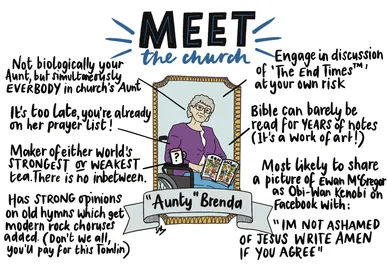 MEET
the church
Not biologically your
Aunt, but simultaneously
EVERBODY in church's Aunt
It's too late, you're already
on her prayer list!
Maker of either world's
STRONGEST or WEAKEST
tea. There is no inbetween.
Has STRONG opinions
on old hymns which get
modern rock choruses
added. (Don't we all,
you'll pay for this Tomlin)
"Aunty" Brenda
Engage in discussion
of 'The End Times™,'
at your own risk
Bible can barely be
read for YEARS of notes
(It's a work of art!)
Most likely to share
a picture of Ewan McGregor
as Obi-Wan Kenobi on
Facebook with:
"IM NOT ASHAMED
OF JESUS WRITE AMEN
IF YOU AGREE"